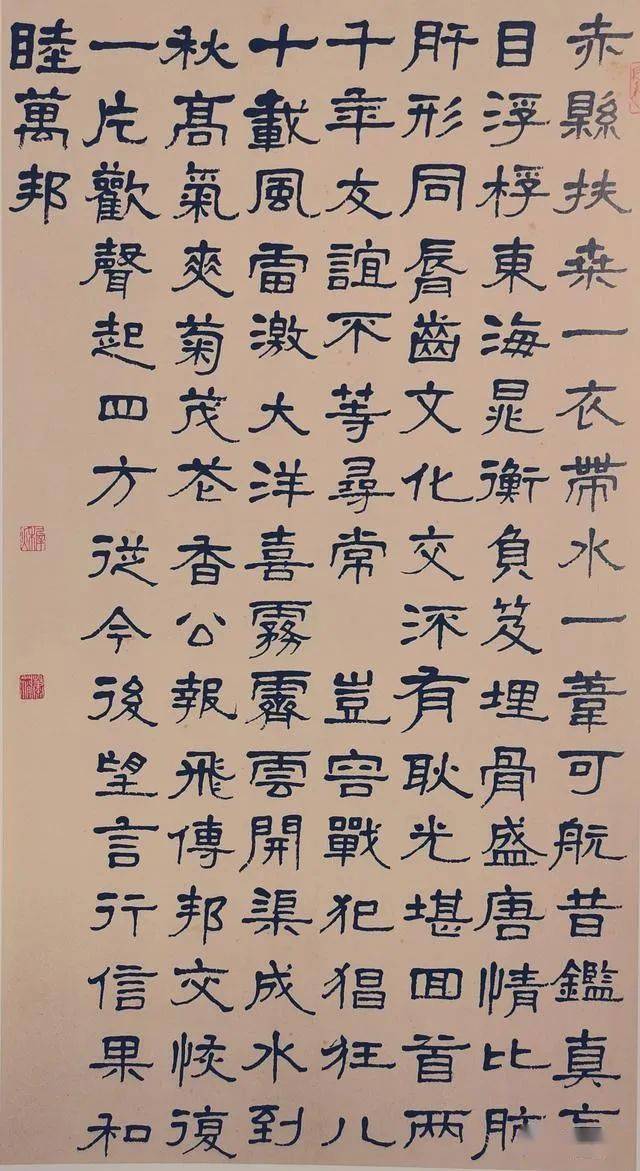 赤縣扶桑一衣帶水一葦可航昔鑑真盲
目浮桴東海晁衡負笈埋骨盛唐情比肺
肝形同脣齒文化交流有耿光堪回首兩
千年友誼不等尋常 豈容戰犯猖狂八
十載風雷激大洋喜霧霽雲開渠成水到
秋髙氣爽菊茂花香公報飛傳邦交恢復
一片歡聲起四方從今後望言行信果和
睦萬邦